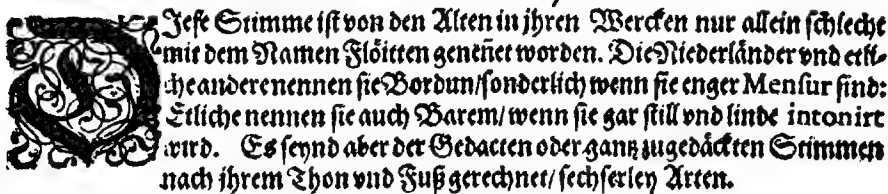 DJese Stimme ist von den Alten in jhren Wercken nur allein schlecht
mit dem Namen Flöitten genen̄et worden. Die Niederländer vnd etli-
che andere nennen sie Bordun/sonderlich wenn sie enger Mensur sind:
Etliche nennen sie auch Barem/wenn sie gar still vnd linde intonirt
wird. Es seynd aber der Gedacten oder gantz zugedäckten Stimmen
nach jhrem Thon vnd Fuß gerechnet/sechserley Arten.